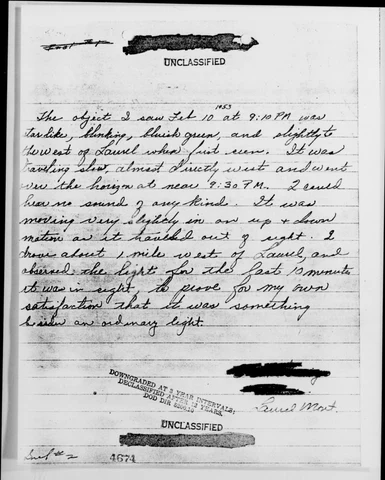 UNCLASSIFIED
The object I saw Feb 10 1953 at 9:10 PM was
starlike, blinking, bluish green, and slightly to
the west of Laurel when first seen. It was
traveling slow, almost directly west and went
over the horizon at near 9:30 P.M. I could
hear no sound of any kind. It was
moving very slightly in an up & down
motion as it traveled out of sight. I
drove about 1 mile west of Laurel, and
observed the light for the last 10 minutes
it was in sight, to prove for my own
satisfaction that it was something
besides an ordinary light.
Laurel Mont.
DOWNGRADED AT 3 YEAR INTERVALS;
DECLASSIFIED AFTER 12 YEARS.
DOD DIR 5200.10
UNCLASSIFIED
Incl #2
4674